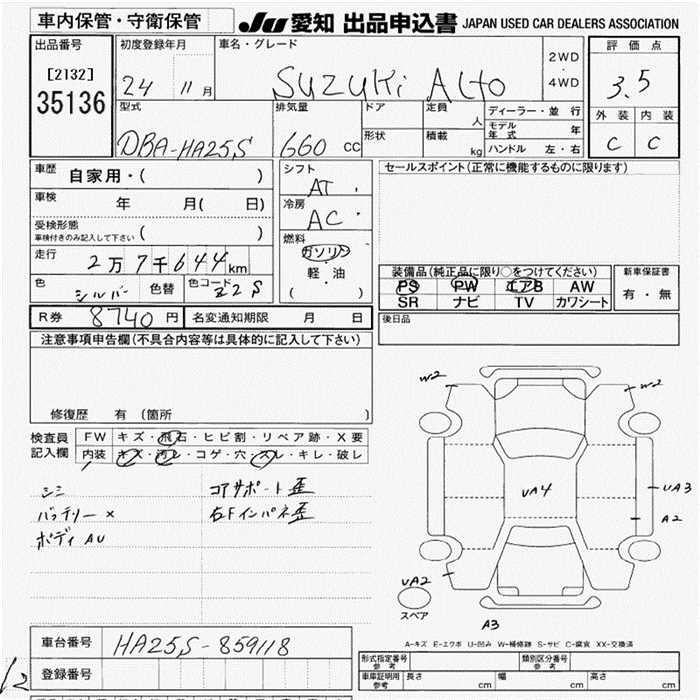 車内保管・守衛保管
JU 愛知 出品申込書 JAPAN USED CAR DEALERS ASSOCIATION
出品番号
[2132]
35136
初度登録年月
24 11月
車名・グレード
Suzuki Alto
2WD
・
4WD
評価点
3.5
外装 内装
C C
型式
DBA-HA25S
排気量
660 cc
ドア
形状
定員
人
積載
kg
ディーラー・並行
モデル年式 年
ハンドル 左・右
車歴
自家用・( )
車検
年 月( 日)
受検形態
車検付きのみ記入して下さい ( )
走行
2万7千644km
色 シルバー 色替 色コード Z2S
シフト
AT
冷房
AC
燃料
ガソリン
軽・油
( )
セールスポイント(正常に機能するものに限ります)
装備品(純正品に限り○をつけてください)
PS PW エアB AW
SR ナビ TV カワシート
新車保証書
有・無
R券 8740円 名変通知期限 月 日
後日品
注意事項申告欄(不具合内容等は具体的に記入して下さい)
修復歴 有 (箇所 )
検査員記入欄
FW キズ・飛石・ヒビ割・リペア跡・X要
内装 キズ・汚レ・コゲ・穴・スレ・キレ・破レ
シミ
バッテリー×
ボディAU
コアサポート歪
右Fインパネ歪
W2
W2
UA4
UA3
A2
UA2
スペア
A3
A-キズ E-エクボ U-凹み W-補修跡 S-サビ C-腐食 XX-交換済
車台番号 HA25S-859118
登録番号
形式指定番号 参考
類別区分番号 参考
車庫証明用 参考 長さ cm 幅 cm 高さ cm